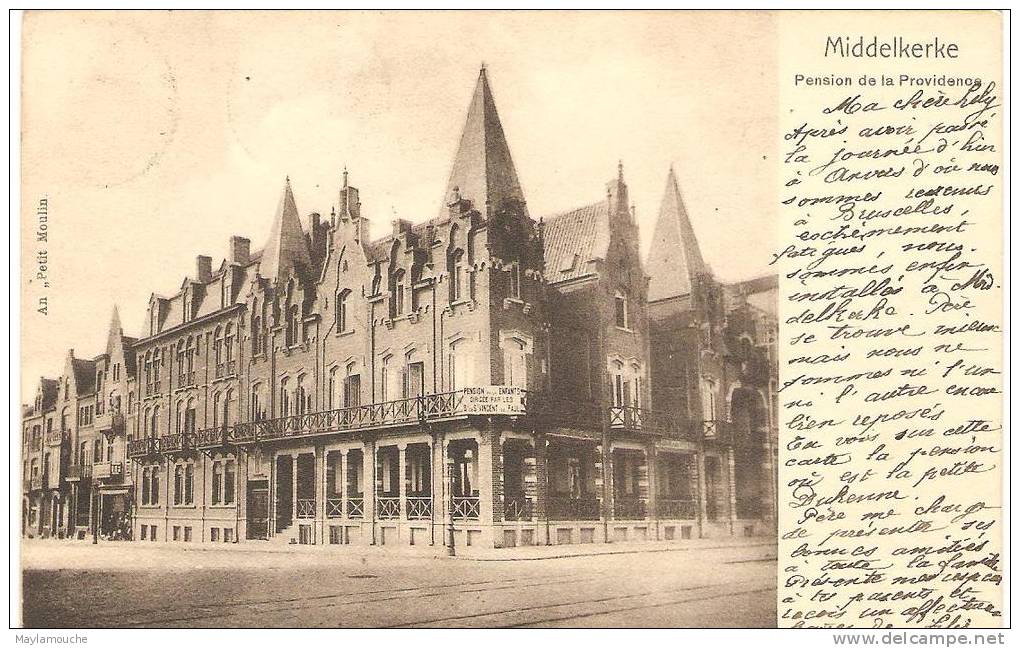 Middelkerke
Pension de la Providence
An „Petit Moulin.
PENSION POUR ENFANTS
DIRIGÉE PAR LES
DE ST VINCENT DE PAUL
Ma chère
Après avoir passé
la journée d'hier
à Anvers d'où nous
sommes revenus
à Bruscelles,
fatigués, nous
sommes enfin
installés à Mid.
delkerke. Père
se trouve mieux
mais nous ne
sommes ni l'un
ni l'autre encore
bien reposés
En vois sur cette
carte la pension
où est la petite
Dukenne.
Père me charge
de présenter ses
bonnes amitiés
à toute la famille
Présente mes respects
à tes parents et
reçois un affectueux
de
Maylamouche
www.delcampe.net